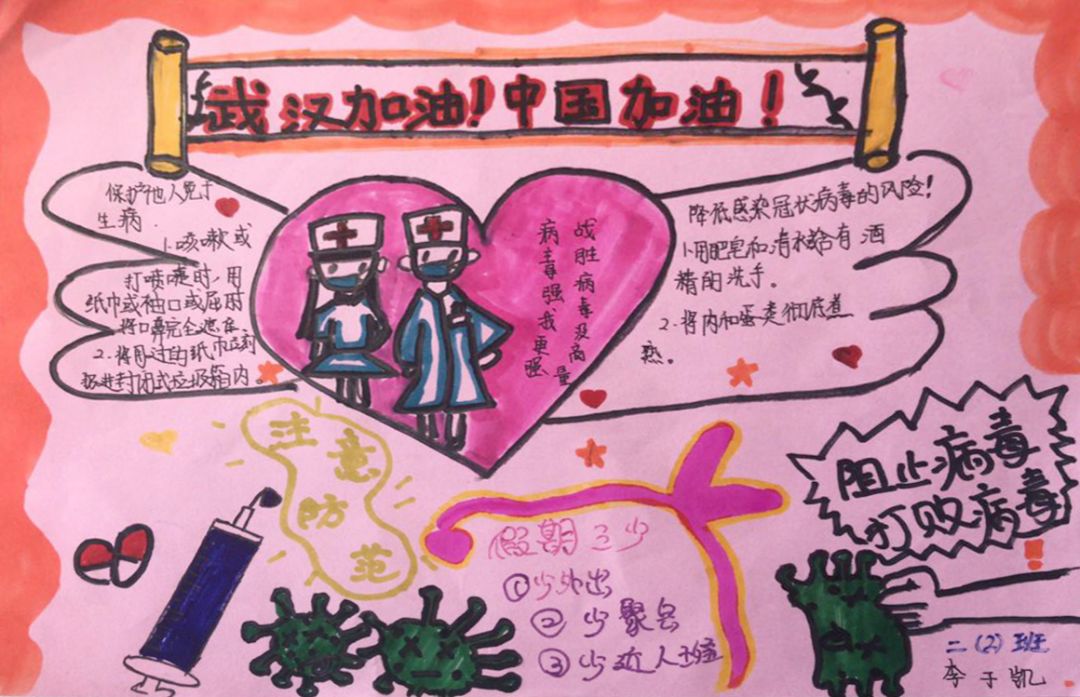 武汉加油!中国加油!
保护他人免于
生病.
1.咳嗽或
打喷嚏时,用
纸巾或袖口或屈肘
将口鼻完全遮住
2.将用过的纸巾立刻
扔进封闭式垃圾箱内。
战胜病毒没商量
病毒强我更强
降低感染冠状病毒的风险!
1.用肥皂和清水或含有酒
精的洗手。
2.将肉和蛋类彻底煮
熟。
注意防范
假期三少
①少外出
②少聚会
③少近人群
阻止病毒
打败病毒
二(2)班
李于凯